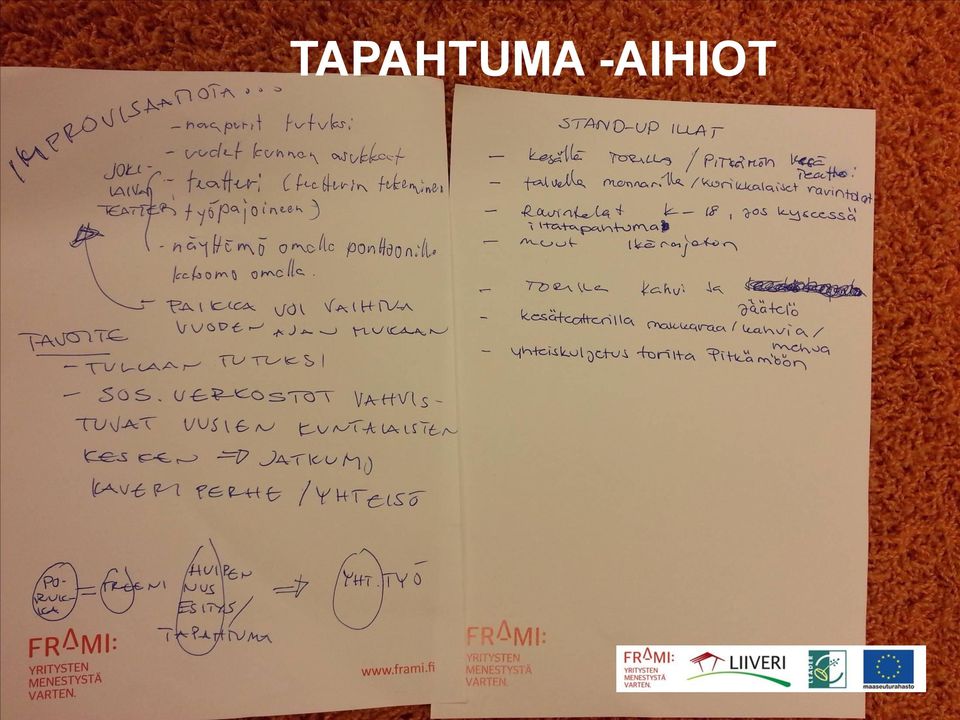 TAPAHTUMA -AIHIOT
IMPROVISAATIOTA...
- naapurit tutuksi
- uudet kunnan asukkaat
JOKI-
LAIVA
TEATTERI
- teatteri (teatterin tekeminen
työpajoineen)
- näyttämö omalla ponttoonilla
katsomo omalla.
- PAIKKA VOI VAIHTUA
VUODEN AJAN MUKAAN
TAVOITE
- TULLAAN TUTUKSI
- SOS. VERKOSTOT VAHVIS-
TUVAT UUSIEN KUNTALAISTEN
KESKEN => JATKUMO
KAVERI PERHE / YHTEISÖ
PO-
RUK-
KA
= TREENI
HUIPEN
NUS
ESITYS/
TAPAHTUMA
=> YHT.TYÖ
FRAMI:
YRITYSTEN
MENESTYSTÄ
VARTEN.
www.frami.fi
STAND-UP ILLAT
- kesällä TORILLA / PITKÄMÖN kesä
teatteri
- talvella monnarilla / kurikkalaiset ravintolat
- Ravintolat K-18, jos kyseessä
iltatapahtuma
- muut ikärajaton
- TORILLA kahvi ja
jäätelö
- kesäteatterilla makkaraa / kahvia /
mehua
- yhteiskuljetus torilta Pitkämöön
FRAMI:
YRITYSTEN
MENESTYSTÄ
VARTEN.
FRAMI:
YRITYSTEN
MENESTYSTÄ
VARTEN.
LIIVERI
LEADER
maaseuturahasto